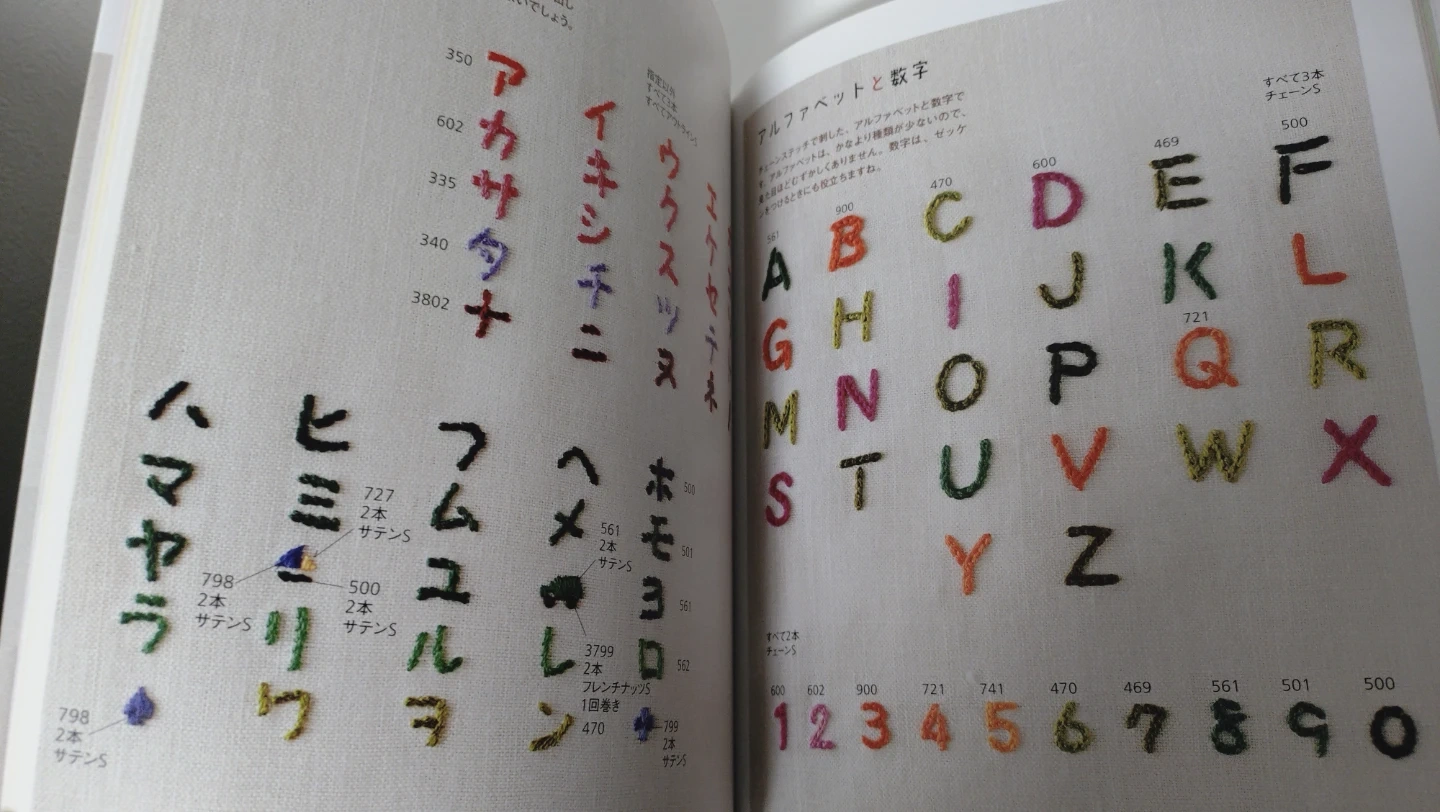 いでしょう。
指定以外
すべて3本
すべてアウトラインS
350
ア
イ
ウ
エ
602
カ
キ
ク
ケ
335
サ
シ
ス
セ
340
タ
チ
ツ
テ
3802
ナ
ニ
ヌ
ネ
ハ
ヒ
フ
ヘ
ホ
500
マ
ミ
ム
メ
モ
501
727
2本
サテンS
561
2本
サテンS
ヤ
ユ
ヨ
561
798
2本
サテンS
500
2本
サテンS
ラ
リ
ル
レ
ロ
562
3799
2本
フレンチナッツS
1回巻き
ワ
ヲ
ン
470
798
2本
サテンS
799
2本
サテンS
アルファベットと数字
チェーンステッチで刺した、アルファベットと数字で
す。アルファベットは、かなより種類が少ないので、
見た目ほどむずかしくありません。数字は、ゼッケ
ンをつけるときにも役立ちますね。
すべて3本
チェーンS
561
900
470
600
469
500
A B C D E F
G H I J K L
721
M N O P Q R
S T U V W X
Y Z
すべて2本
チェーンS
600 602 900 721 741 470 469 561 501 500
1 2 3 4 5 6 7 8 9 0